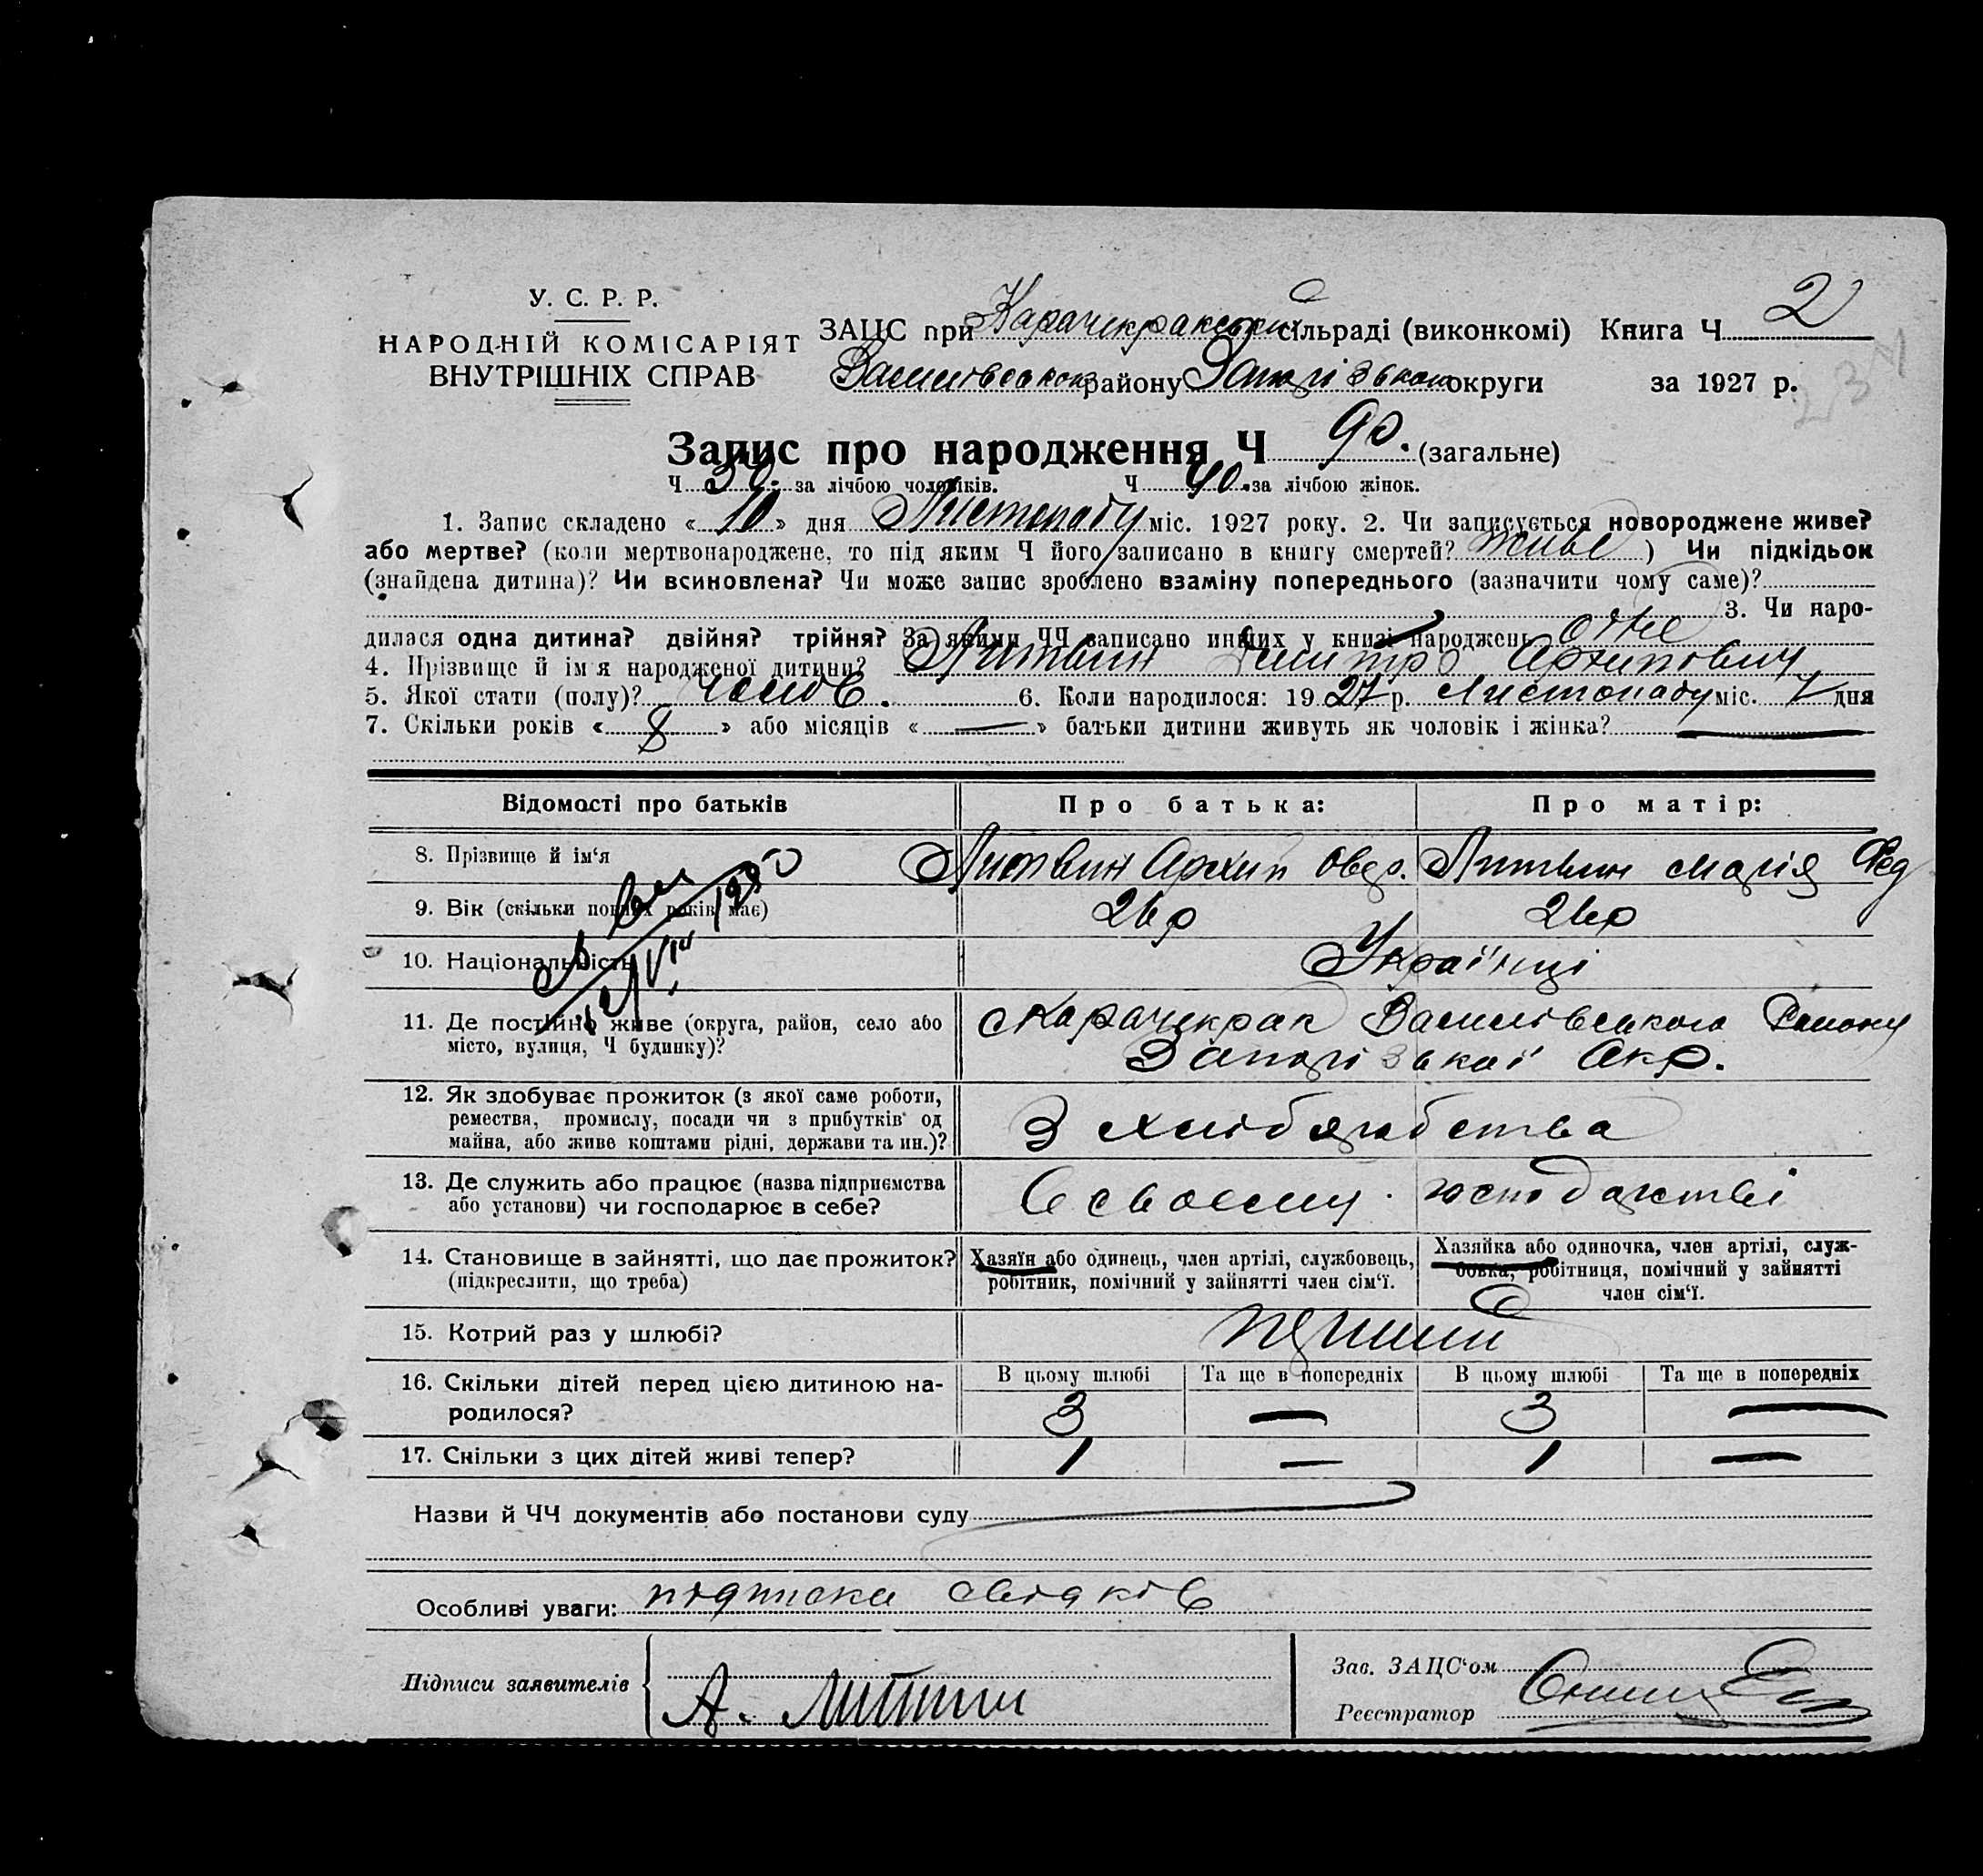 У. С. Р. Р.
НАРОДНІЙ КОМІСАРІЯТ
ВНУТРІШНІХ СПРАВ
ЗАЦС при Карачекракській сільраді (виконкомі) Книга Ч 2
Василівського району Запорізької округи за 1927 р.
Запис про народження Ч 90. (загальне)
Ч за лічбою чоловіків. Ч 40. за лічбою жінок.
1. Запис складено « 10 » дня Листопаду міс. 1927 року. 2. Чи записується новороджене живе?
або мертве? (коли мертвонароджене, то під яким Ч його записано в книгу смертей? живе ) Чи підкідьок
(знайдена дитина)? Чи всиновлена? Чи може запис зроблено взаміну попереднього (зазначити чому саме)?
3. Чи наро-
дилася одна дитина? двійня? трійня? За якими ЧЧ записано инших у книзі народжень одне
4. Прізвище й ім'я народженої дитини? Литвин Дмитро Архипович
5. Якої стати (полу)? чолов. 6. Коли народилося: 1927 р. Листопаду міс. 7 дня
7. Скільки років « 8 » або місяців « — » батьки дитини живуть як чоловік і жінка? —
Відомості про батьків Про батька: Про матір:
8. Прізвище й ім'я Литвин Архип Овер. Литвин Марія Фед
9. Вік (скільки повних років має) 26 р 26 р
10. Національність Українці
11. Де постійно живе (округа, район, село або
місто, вулиця, Ч будинку)?
с Карачекрак Василівського Району
Запорізької Окр.
12. Як здобуває прожиток (з якої саме роботи,
ремества, промислу, посади чи з прибутків од
майна, або живе коштами рідні, держави та ин.)?
З хліборобства
13. Де служить або працює (назва підприємства
або установи) чи господарює в себе?
В своєму господарстві
14. Становище в зайнятті, що дає прожиток?
(підкреслити, що треба)
Хазяїн або одинець, член артілі, службовець,
робітник, помічний у зайнятті член сім'ї.
Хазяйка або одиночка, член артілі, служ-
бовка, робітниця, помічний у зайнятті
член сім'ї.
15. Котрий раз у шлюбі? перший
16. Скільки дітей перед цією дитиною на-
родилося?
В цьому шлюбі Та ще в попередніх В цьому шлюбі Та ще в попередніх
3 — 3 —
17. Скільки з цих дітей живі тепер? 1 — 1 —
Назви й ЧЧ документів або постанови суду
Особливі уваги: підписки свідків
Підписи заявителів
А. Литвин
Зав. ЗАЦС'ом
Реєстратор